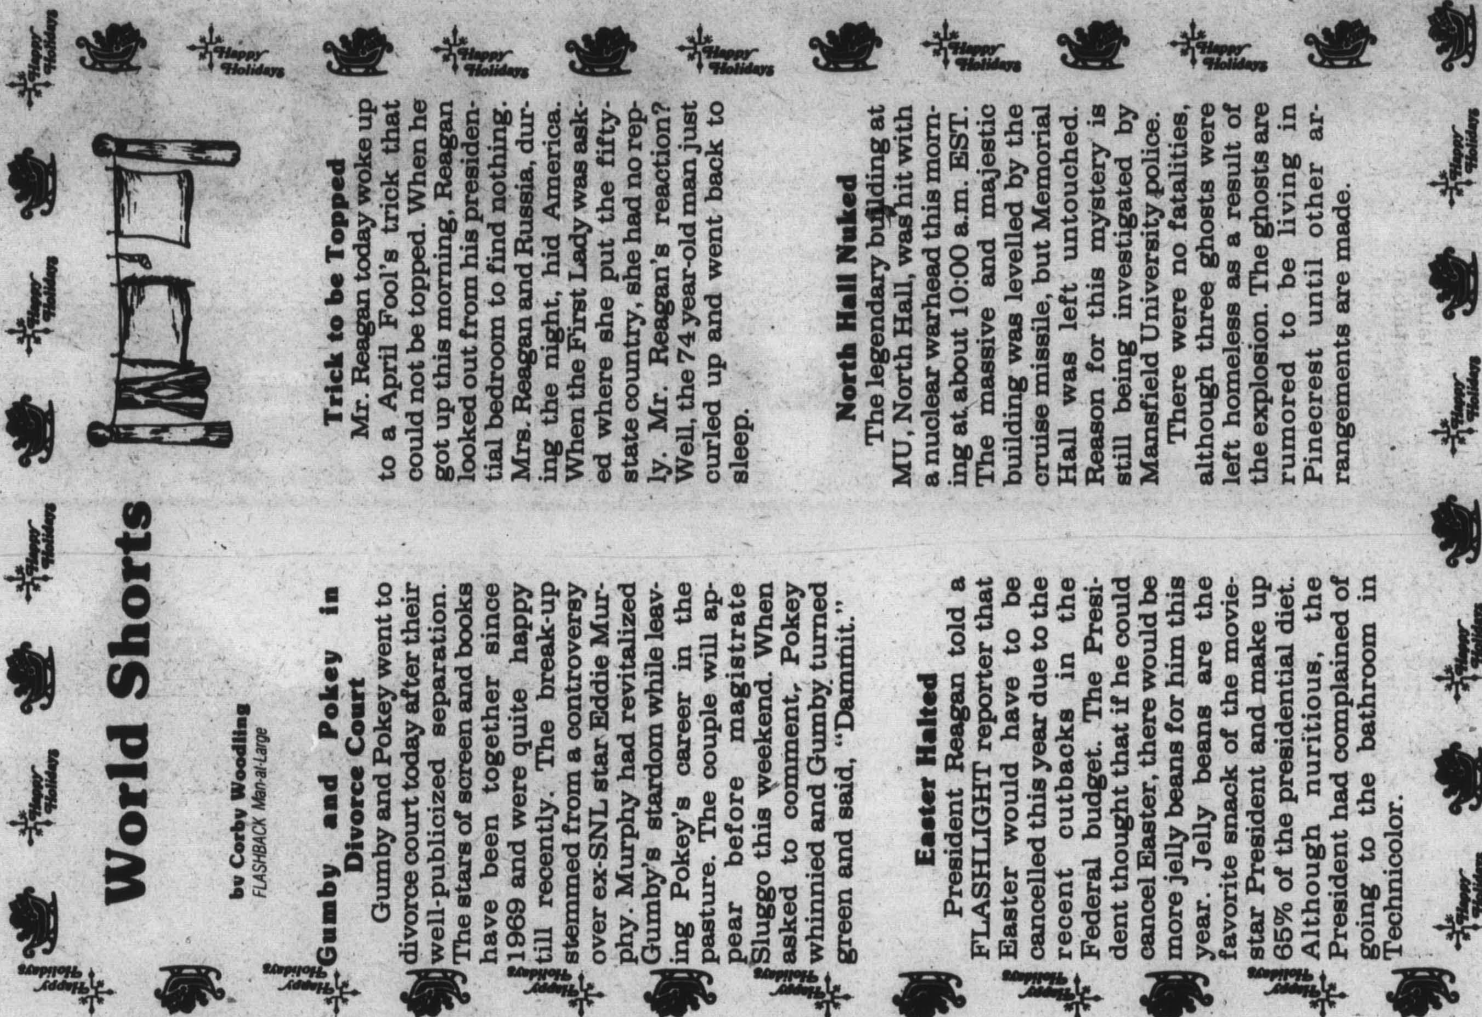 World Shorts
by Corby Woodling
FLASHBACK Man-at-Large
Gumby and Pokey in
Divorce Court
Gumby and Pokey went to
divorce court today after their
well-publicized separation.
The stars of screen and books
have been together since
1969 and were quite happy
till recently. The break-up
stemmed from a controversy
over ex-SNL star Eddie Mur-
phy. Murphy had revitalized
Gumby's stardom while leav-
ing Pokey's career in the
pasture. The couple will ap-
pear before magistrate
Sluggo this weekend. When
asked to comment, Pokey
whinnied and Gumby turned
green and said, "Dammit."
Easter Halted
President Reagan told a
FLASHLIGHT reporter that
Easter would have to be
cancelled this year due to the
recent cutbacks in the
Federal budget. The Presi-
dent thought that if he could
cancel Easter, there would be
more jelly beans for him this
year. Jelly beans are the
favorite snack of the movie-
star President and make up
65% of the presidential diet.
Although nuritious, the
President had complained of
going to the bathroom in
Technicolor.
Trick to be Topped
Mr. Reagan today woke up
to a April Fool's trick that
could not be topped. When he
got up this morning, Reagan
looked out from his presiden-
tial bedroom to find nothing.
Mrs. Reagan and Russia, dur-
ing the night, hid America.
When the First Lady was ask-
ed where she put the fifty-
state country, she had no rep-
ly. Mr. Reagan's reaction?
Well, the 74 year-old man just
curled up and went back to
sleep.
North Hall Nuked
The legendary building at
MU, North Hall, was hit with
a nuclear warhead this morn-
ing at about 10:00 a.m. EST.
The massive and majestic
building was levelled by the
cruise missile, but Memorial
Hall was left untouched.
Reason for this mystery is
still being investigated by
Mansfield University police.
There were no fatalities,
although three ghosts were
left homeless as a result of
the explosion. The ghosts are
rumored to be living in
Pinecrest until other ar-
rangements are made.
Happy
Holidays
Happy
Holidays
Happy
Holidays
Happy
Holidays
Happy
Holidays
Happy
Holidays
Happy
Holidays
Happy
Holidays
Happy
Holidays
Happy
Holidays
Happy
Holidays
Happy
Holidays
Happy
Holidays
Happy
Holidays
Happy
Holidays
Happy
Holidays
Happy
Holidays
Happy
Holidays
Happy
Holidays
Happy
Holidays